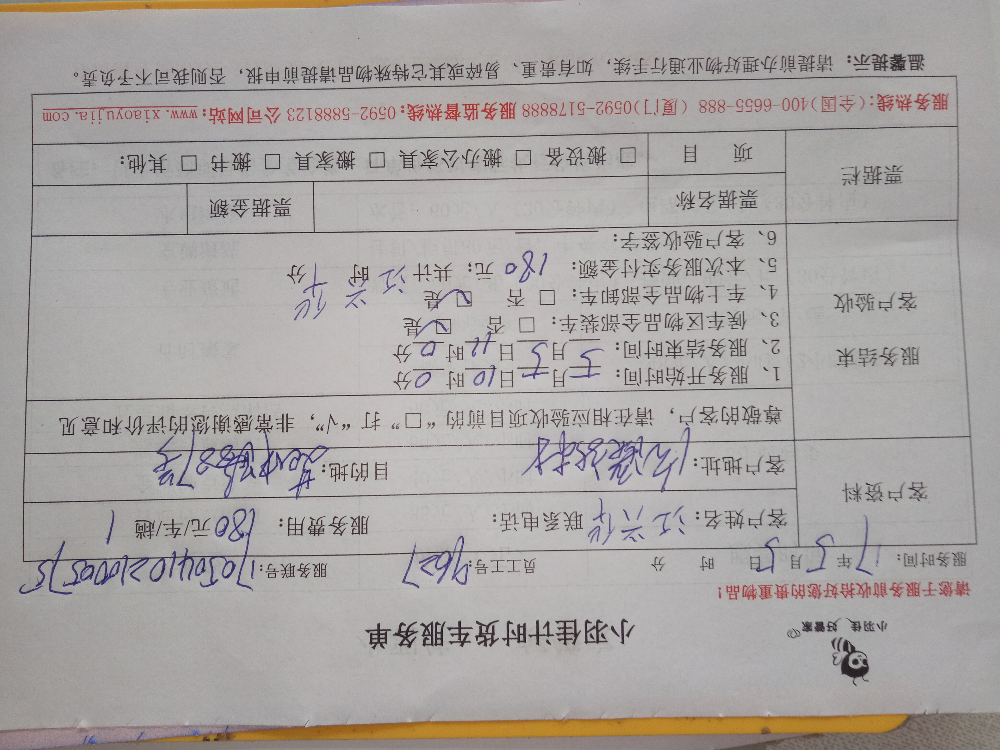 小羽佳 好管家
小羽佳计时货车服务单
请您于服务前收拾好您的贵重物品！
服务时间：17年5月5日 时 分 员工工号：9627 服务联号：17050410210000575
客户资料
客户姓名：江兴华 联系电话： 服务费用：180元/车/趟 1
客户地址： 目的地：
尊敬的客户，请在相应验收项目前的“□”打“√”，非常感谢您的评价和意见
服务结束
客户验收
1、服务开始时间：5月5日10时0分
2、服务结束时间：5月5日12时0分
3、候车区物品全部装车：□ 否 ☑ 是
4、车上物品全部卸车：□ 否 ☑ 是
5、本次服务实付金额：180元；共计 时 分
6、客户验收签字：江兴华
票据栏
票据名称 票据金额
项 目 □ 搬设备 □ 搬办公家具 □ 搬家具 □ 搬书 □ 其他：
服务热线：(全国)400-6655-888 (厦门)0592-5178888 服务监督热线：0592-5888123 公司网站：www.xiaoyujia.com
温馨提示：请提前办理好物业通行手续，如有贵重、易碎或其它特殊物品请提前申报，否则我司不予负责。